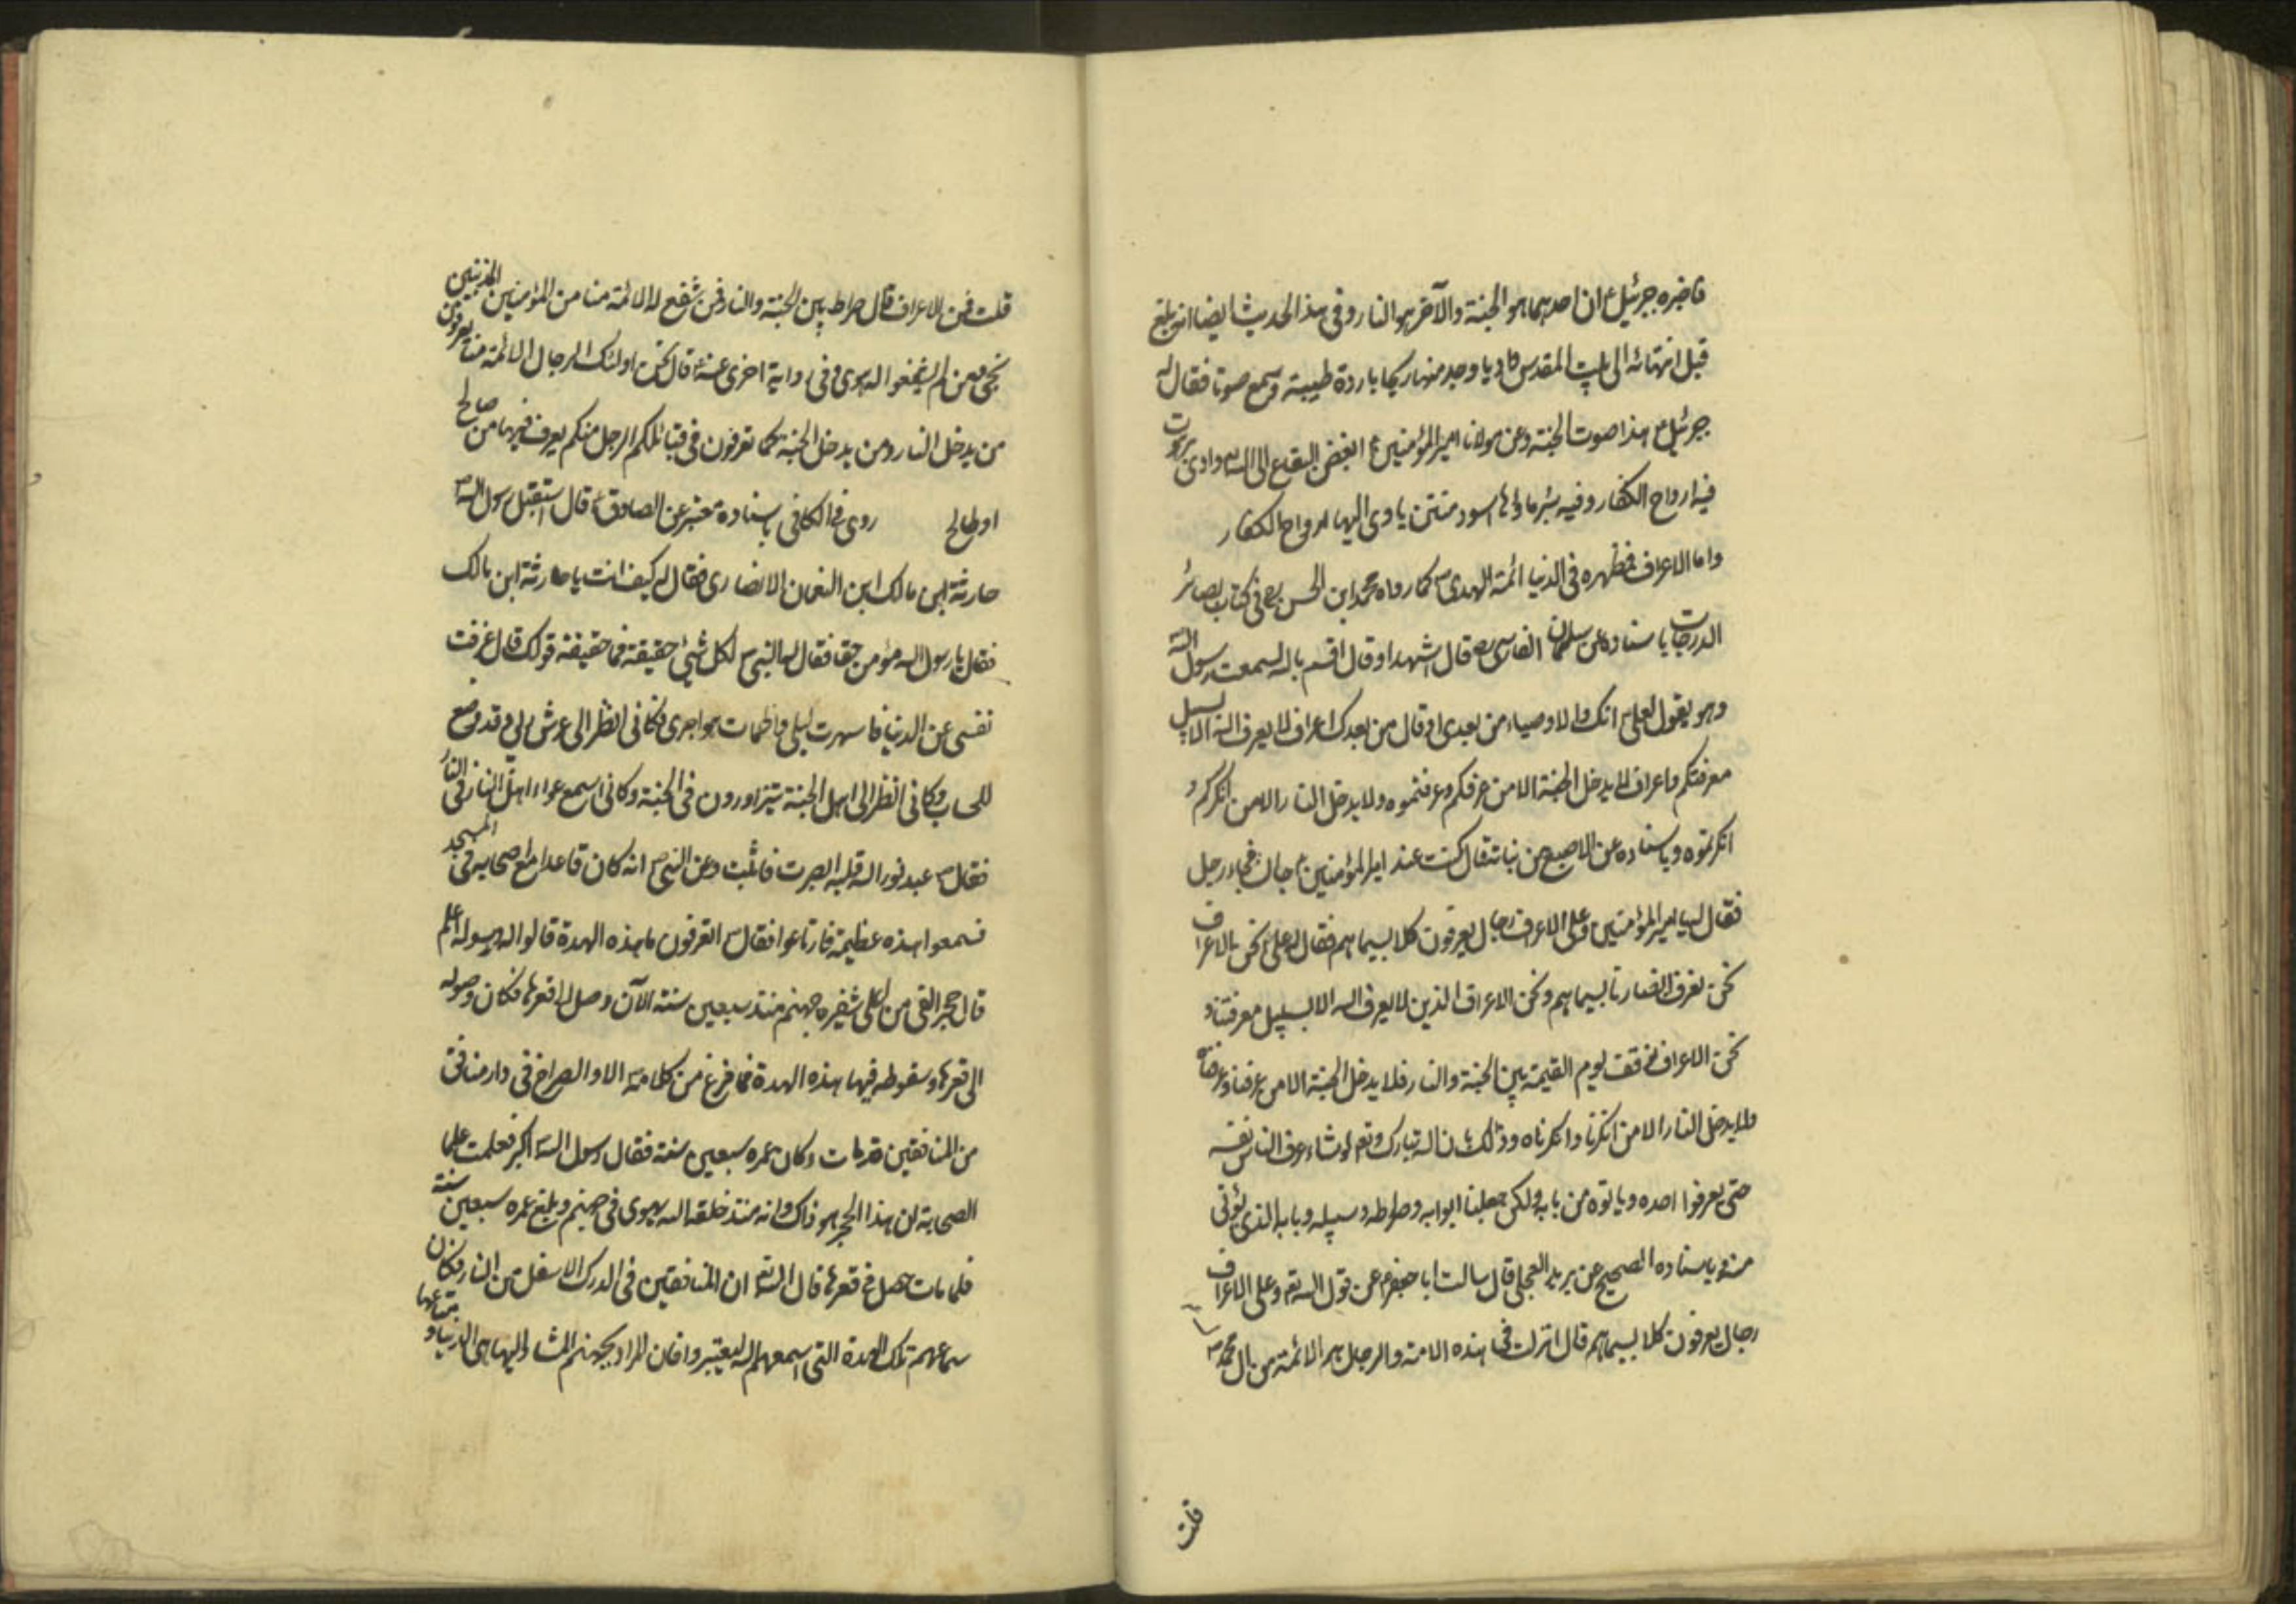 فاخبره جبرئيل ع ان احدهما هو الجنة والآخر هو النار وفي هذا الحديث ايضا انه بلغ
قبل انتهائه الى بيت المقدس واديا وجد منها ريحا باردة طيبة وسمع صوتا فقال له
جبرئيل ع هذا صوت الجنة وعن مولانا امير المؤمنين ع ابغض البقاع الى الله وادى برهوت
فيه ارواح الكفار وفيه بئر ماؤها اسود منتن ياوى اليها ارواح الكفار
واما الاعراف فمظهره في الدنيا ائمة الهدى كما رواه محمد ابن الحسن في كتاب بصائر
الدرجات باسناده عن سلمان الفارسى رض قال اشهد او قال اقسم بالله لسمعت رسول الله
وهو يقول لعلى انك والاوصياء من بعدى او قال من بعدك اعراف لا يعرف الله الا بسبيل
معرفتكم واعراف لا يدخل الجنة الا من عرفكم وعرفتموه ولا يدخل النار الا من انكركم و
انكرتموه وباسناده عن الاصبغ بن نباتة قال كنت عند امير المؤمنين ع جالسا فجاء رجل
فقال له يا امير المؤمنين وعلى الاعراف رجال يعرفون كلا بسيماهم فقال له على نحن الاعراف
نحن نعرف انصارنا بسيماهم ونحن الاعراف الذين لا يعرف الله الا بسبيل معرفتنا و
نحن الاعراف نوقف يوم القيمة بين الجنة والنار فلا يدخل الجنة الا من عرفنا وعرفناه
ولا يدخل النار الا من انكرنا وانكرناه وذلك بان الله تبارك وتع لو شاء عرف الناس نفسه
حتى يعرفوا احده وياتوه من بابه ولكن جعلنا ابوابه وصراطه وسبيله وبابه الذى يؤتى
منه وباسناده الصحيح عن بريد العجلى قال سالت ابا جعفر ع عن قول الله تع وعلى الاعراف
رجال يعرفون كلا بسيماهم قال انزلت في هذه الامة والرجال هم الائمة من ال محمد ص
قلت
قلت فمن الاعراف قال صراط بين الجنة والنار فمن شفع له الائمة منا من المؤمنين المذنبين
نجى ومن لم يشفعوا له هوى وفي رواية اخرى عنه قال نحن اولئك الرجال الائمة منا يعرفون
من يدخل النار ومن يدخل الجنة كما تعرفون في قبائلكم الرجل منكم يعرف فيها من صالح
او طالح روى في الكافى باسناده معتبر عن الصادق ع قال استقبل رسول الله ص
حارثة ابن مالك ابن النعمان الانصارى فقال له كيف انت يا حارثة ابن مالك
فقال يا رسول الله مؤمن حقا فقال له النبي ص لكل شيئ حقيقة فما حقيقة قولك قال عزفت
نفسى عن الدنيا فاسهرت ليلى واظمات هواجرى وكانى انظر الى عرش ربى وقد وضع
للحساب وكانى انظر الى اهل الجنة يتزاورون في الجنة وكانى اسمع عواء اهل النار في النار
فقال ص عبد نور الله قلبه ابصرت فاثبت وعن النبي ص انه كان قاعدا مع اصحابه في المسجد
فسمعوا هدة عظيمة فارتاعوا فقال ص اتعرفون ما هذه الهدة قالوا الله ورسوله اعلم
قال حجر القى من اعلى شفيره جهنم منذ سبعين سنة الآن وصل الى قعرها فكان وصوله
الى قعرها وسقوطه فيها هذه الهدة فما فرغ من كلامه الا والصراخ في دار منافق
من المنافقين قد مات وكان عمره سبعين سنة فقال رسول الله اكبر فعلمت علما
الصحابة ان هذا الحجر هو ذاك وانه منذ خلقه الله يهوى في جهنم وبلغ عمره سبعين سنة
فلما مات حصل في قعرها قال الله تع ان المنافقين في الدرك الاسفل من النار فكان
سماعهم تلك الهدة التى اسمعهم الله ليعتبروا فان المراد بجهنم المشار اليها هى الدنيا و متاعها